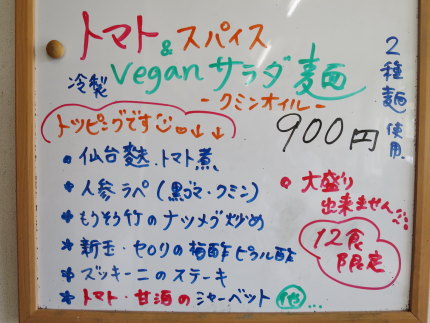 トマト&スパイス
冷製 Vegan サラダ麺
-クミンオイル-
2種麺使用
900円
トッピングです↓↓
・仙台麩.トマト煮
* 人参ラペ(黒ゴマ・クミン)
* もうそう竹のナツメグ炒め
* 新玉・セロリの梅酢ピクル酢
* ズッキーニのステーキ
* トマト・甘酒のシャーベット 他...
・大盛り
出来ません
12食
限定